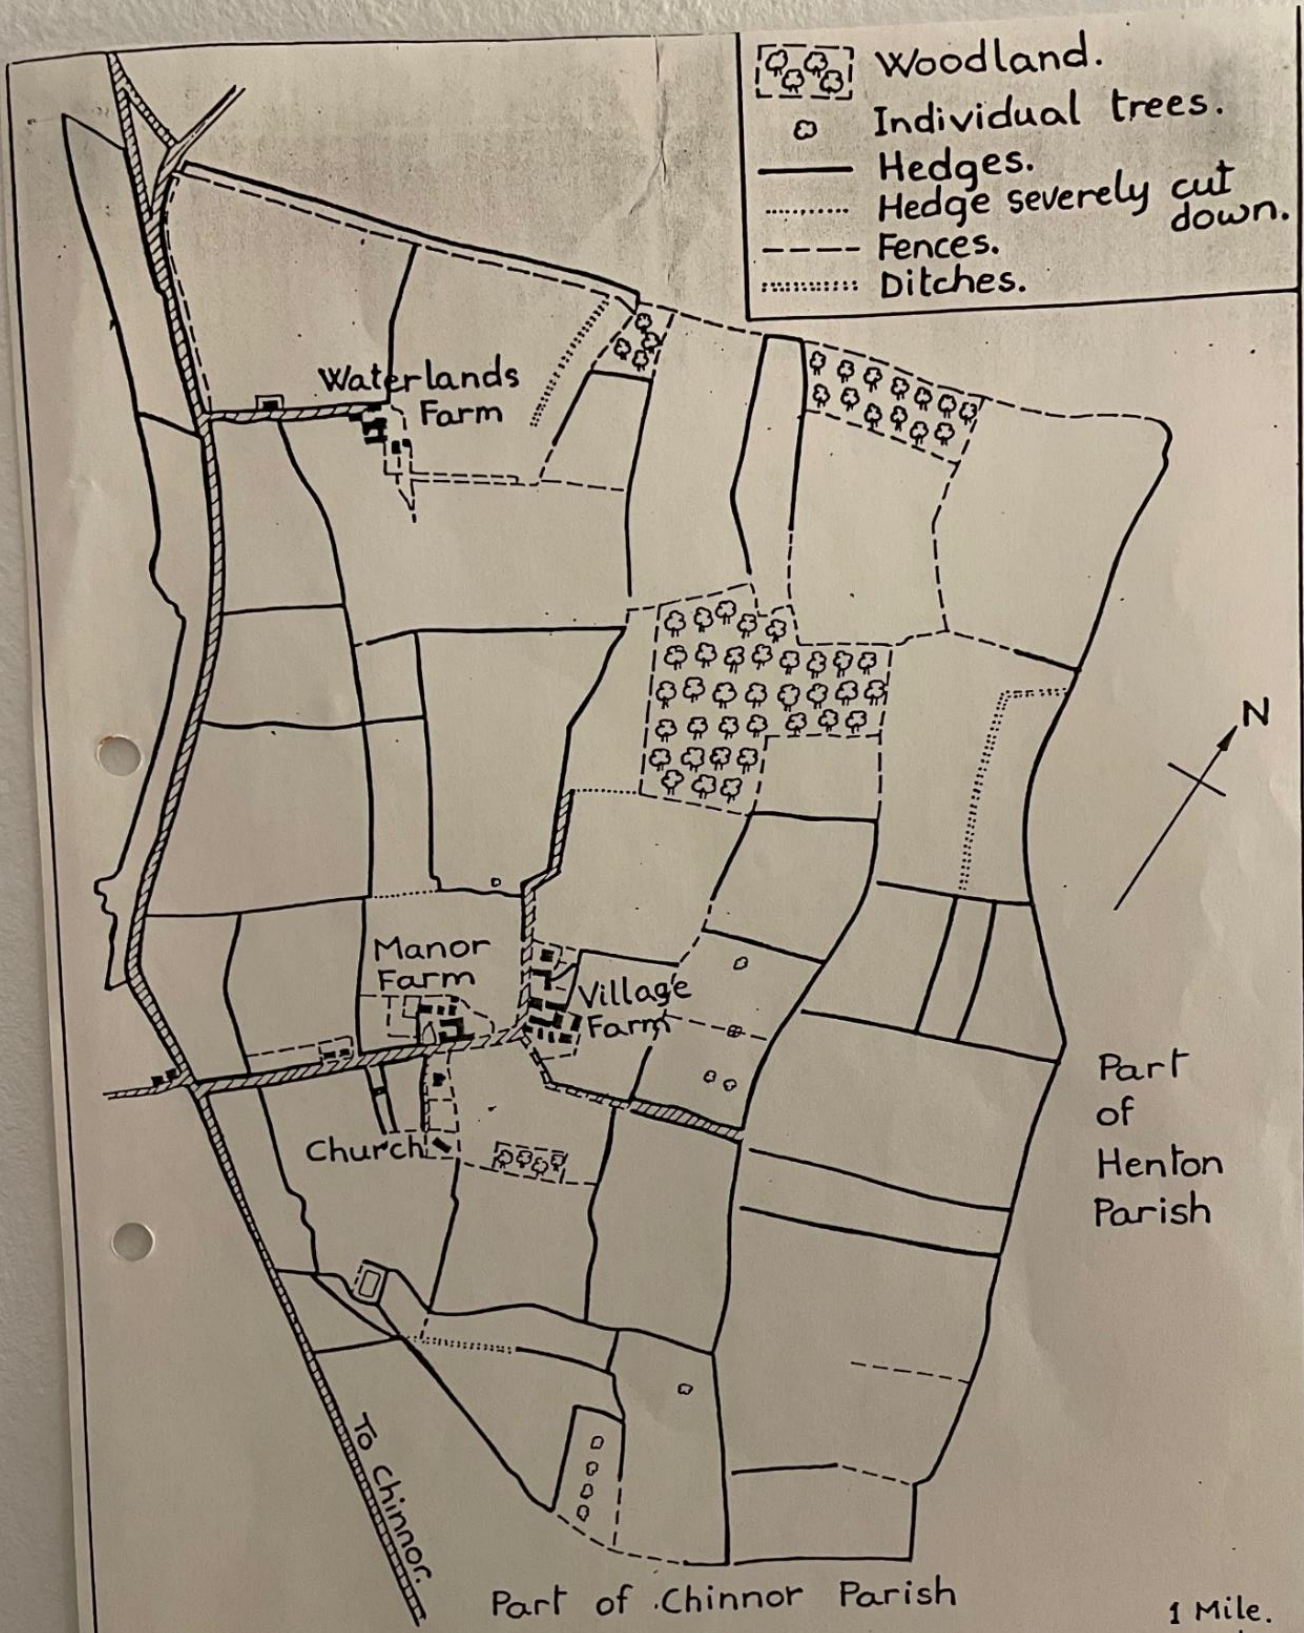 Woodland.
Individual trees.
Hedges.
Hedge severely cut
down.
Fences.
Ditches.
Waterlands
Farm
N
Manor
Farm
Village
Farm
Part
of
Henton
Parish
Church
To Chinnor.
Part of Chinnor Parish
1 Mile.